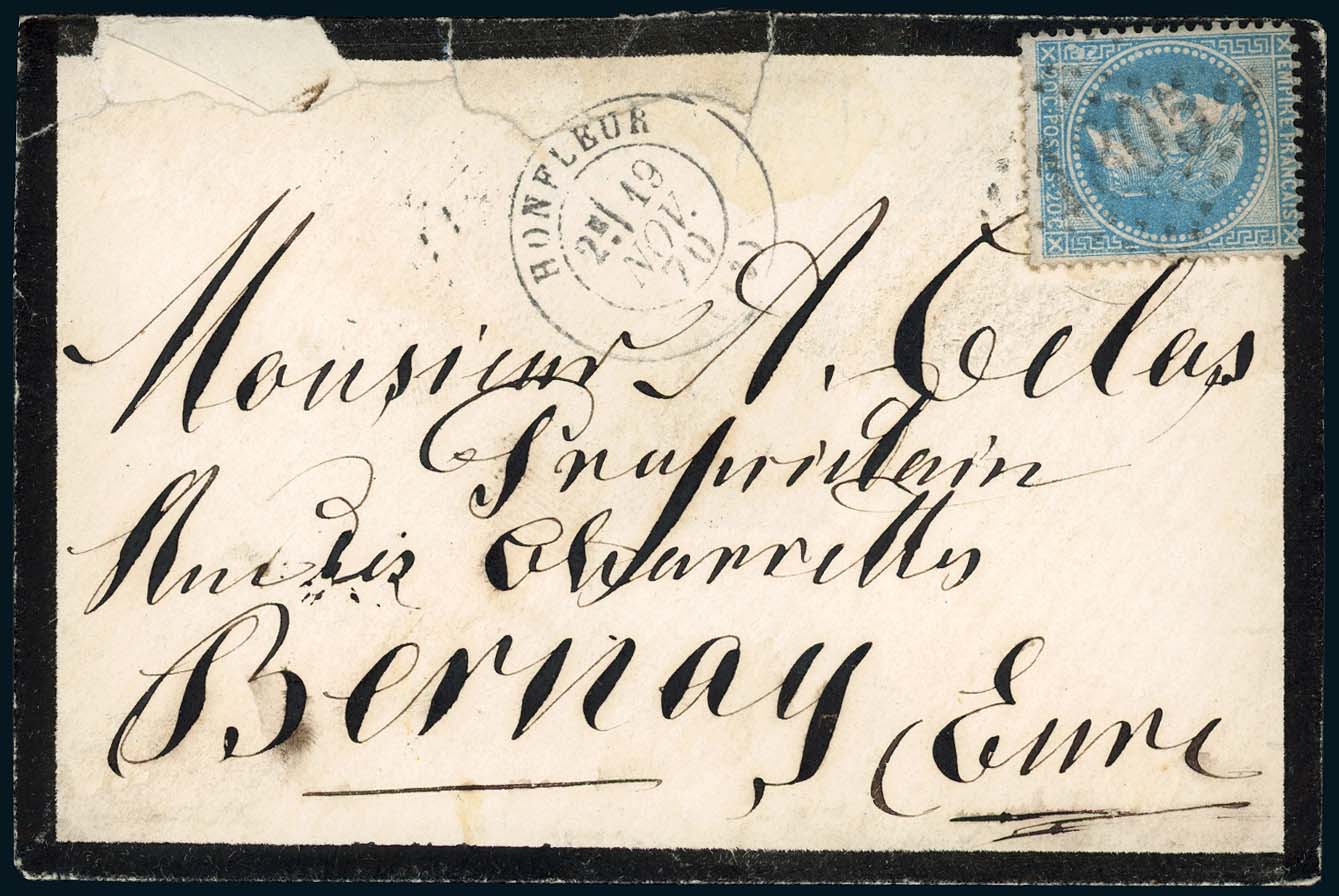 HONFLEUR
2E/ 19
NOV.
70
EMPIRE FRANÇAIS
20 C POSTES 20 C
Monsieur A. Celas
Propriétaire
Rue des Charrettes
Bernay (Eure